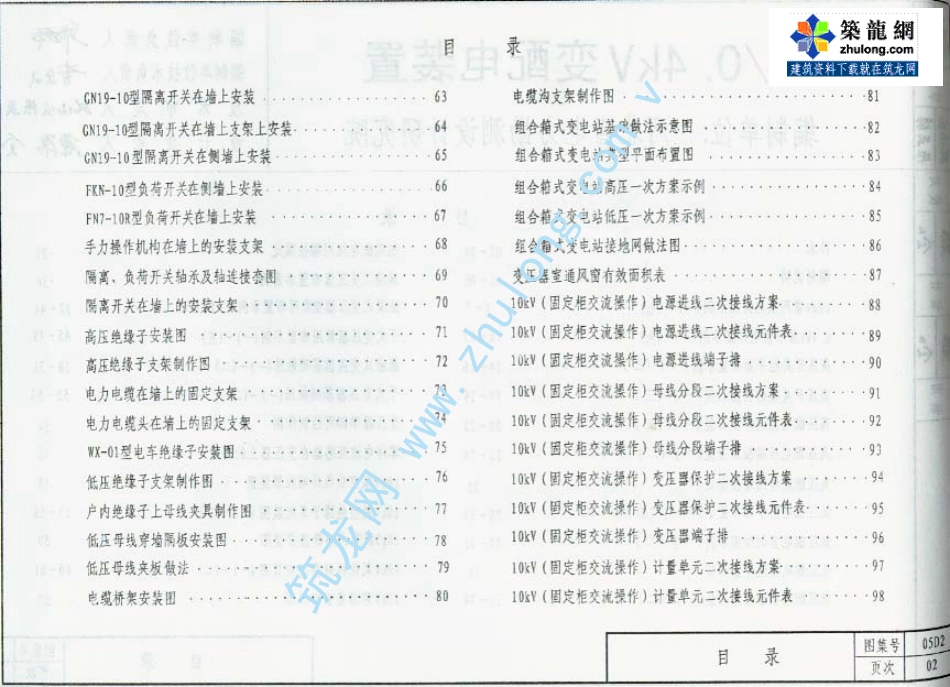 築龍網
zhulong.com
建筑资料下载就在筑龙网
目 录
GN19-10型隔离开关在墙上安装 63
GN19-10型隔离开关在墙上支架上安装 64
GN19-10型隔离开关在侧墙上安装 65
FKN-10型负荷开关在侧墙上安装 66
FN7-10R型负荷开关在墙上安装 67
手力操作机构在墙上的安装支架 68
隔离、负荷开关轴承及轴连接态图 69
隔离开关在墙上的安装支架 70
高压绝缘子安装图 71
高压绝缘子支架制作图 72
电力电缆在墙上的固定支架 73
电力电缆头在墙上的固定支架 74
WX-01型电车绝缘子安装图 75
低压绝缘子支架制作图 76
户内绝缘子上母线夹具制作图 77
低压母线穿墙隔板安装图 78
低压母线夹板做法 79
电缆桥架安装图 80
电缆沟支架制作图 81
组合箱式变电站基础做法示意图 82
组合箱式变电站典型平面布置图 83
组合箱式变电站高压一次方案示例 84
组合箱式变电站低压一次方案示例 85
组合箱式变电站接地网做法图 86
变压器室通风窗有效面积表 87
10kV(固定柜交流操作)电源进线二次接线方案 88
10kV(固定柜交流操作)电源进线二次接线元件表 89
10kV(固定柜交流操作)电源进线端子排 90
10kV(固定柜交流操作)母线分段二次接线方案 91
10kV(固定柜交流操作)母线分段二次接线元件表 92
10kV(固定柜交流操作)母线分段端子排 93
10kV(固定柜交流操作)变压器保护二次接线方案 94
10kV(固定柜交流操作)变压器保护二次接线元件表 95
10kV(固定柜交流操作)变压器端子排 96
10kV(固定柜交流操作)计量单元二次接线方案 97
10kV(固定柜交流操作)计量单元二次接线元件表 98
筑龙网 www.zhulong.com
目 录
图集号 05D2
页次 02